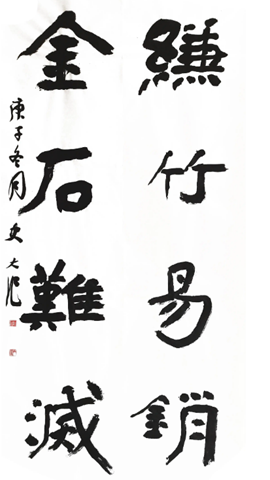 縑竹易銷
金石難滅
庚子冬月史大